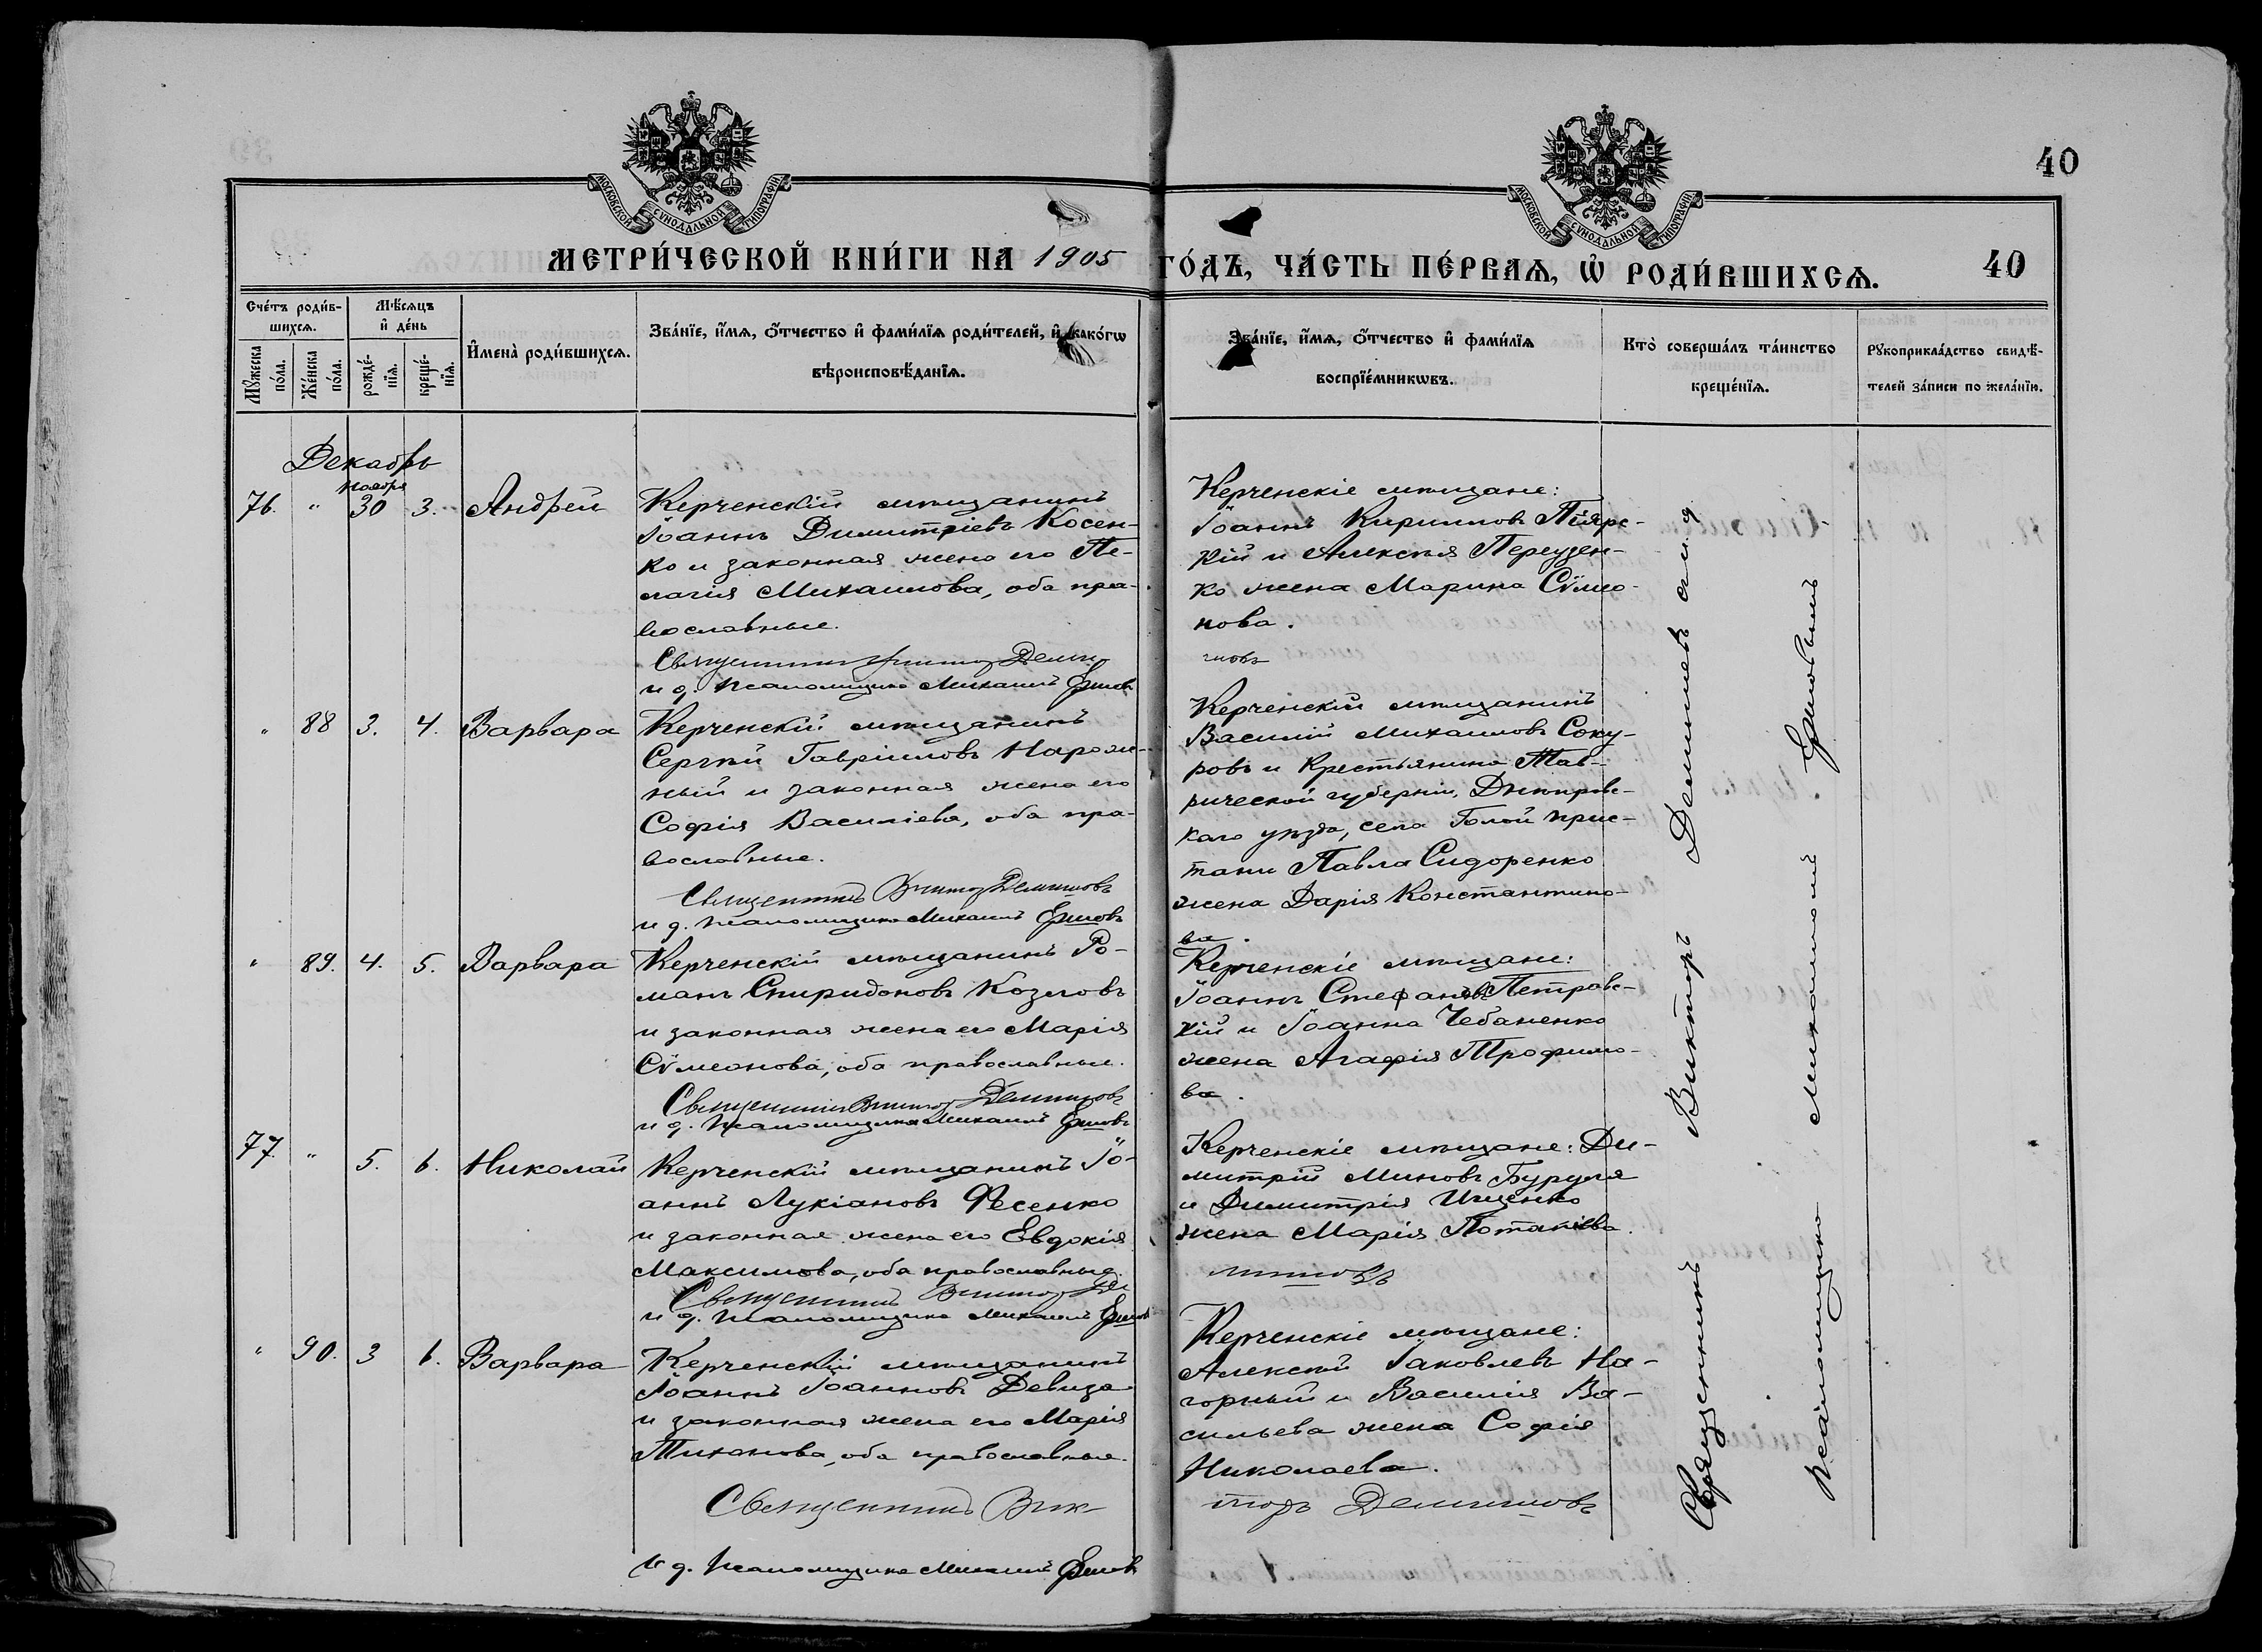 40
МОСКОВСКОЙ СѴНОДАЛЬНОЙ ТИПОГРАФІИ
МОСКОВСКОЙ СѴНОДАЛЬНОЙ ТИПОГРАФІИ
МЕТРИ́ЧЕСКОЙ КНИ́ГИ НА 1905 ГО́ДЪ, ЧА́СТЬ ПЕ́РВАѦ, Ѡ РОДИ́ВШИХСѦ.
40
Сче́тъ роди́в-
шихсѧ.
Мꙋ́жеска по́ла.
Же́нска по́ла.
Мѣ́сѧцъ
и҆ де́нь
рожде́-
нїѧ.
креще́-
нїѧ.
И҆мена̀ роди́вшихсѧ.
Зва́нїе, и҆́мѧ, ѻ҆́тчество и҆ фами́лїѧ роди́телей, и҆ како́гѡ
вѣроисповѣ́данїѧ.
Зва́нїе, и҆́мѧ, ѻ҆́тчество и҆ фами́лїѧ
воспрїе́мникѡвъ.
Кто̀ соверша́лъ та́инство
креще́нїѧ.
Рꙋкоприкла́дство свидѣ́-
телей за́писи по жела́нїю.
Декабрь
ноября
76. " 30 3. Андрей
Керченскій мѣщанинъ
Іоаннъ Димитріевъ Косен-
ко и законная жена его Пе-
лагія Михаилова, оба пра-
вославные.
Священникъ Викторъ Деми
и д. псаломщика Михаилъ Ершовъ
Керченскіе мѣщане:
Іоаннъ Кирилловъ Піяр-
кій и Алексія Переузен-
ко жена Марина Сѵмео-
нова.
шовъ
" 88 3. 4. Варвара
Керченскій мѣщанинъ
Сергѣй Гавріиловъ Нарож-
ный и законная жена его
Софія Василіева, оба пра-
вославные.
Священникъ Викторъ Демишовъ
и д. псаломщика Михаилъ Ершовъ
Керченскій мѣщанинъ
Василій Михаиловъ Соку-
ровъ и крестьянина Тав-
рической губерніи, Днѣпровс-
каго уѣзда, села Голой прис-
тани Павла Сидоренко
жена Дарія Константино-
ва.
" 89. 4. 5. Варвара
Керченскій мѣщанинъ Ро-
манъ Спиридоновъ Козловъ
и законная жена его Марія
Сѵмеонова, оба православные.
Священникъ Викторъ Демишовъ
и д. псаломщика Михаилъ Ершовъ
Керченскіе мѣщане:
Іоаннъ Стефановъ Петровс-
кій и Іоанна Чебаненко
жена Агафія Трофимо-
ва.
77. " 5. 6. Николай
Керченскій мѣщанинъ Іо-
аннъ Лукіановъ Фесенко
и законная жена его Евдокія
Максимова, оба православные.
Священникъ Викторъ Де
и д. псаломщика Михаилъ Ершовъ
Керченскіе мѣщане: Ди-
митрій Миновъ Буруля
и Димитрія Ищенко
жена Марія Потапіева.
мишовъ
" 90. 3 6. Варвара
Керченскій мѣщанинъ
Іоаннъ Іоанновъ Девиза
и законная жена его Марія
Тихонова, оба православные.
Священникъ Вик-
и д. псаломщика Михаилъ Ершовъ
Керченскіе мѣщане:
Алексѣй Іаковлевъ На-
горный и Василія Ва-
сильева жена Софія
Николаева.
торъ Демишовъ
Священникъ Викторъ Демишевъ съ и. д.
псаломщика Михаиломъ Ершовымъ